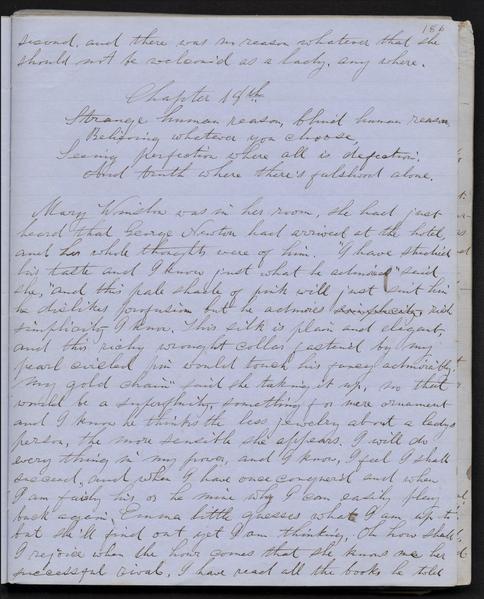 186
second, and there was no reason whatever that she
should not be welcomed as a lady, any where.
Chapter 19th
Strange human reason, blind human reason
Believing whatever you choose,
Seeing perfection where all is defection,
And truth where there's falsehood alone.
Mary Winslow was in her room, she had just
heard that George Newton had arrived at the hotel,
and her whole thoughts were of him. "I have studied
his taste and I know just what he admires" said
she, "and this pale shade of pink will just suit him
he dislikes profusion but he admires simplicity rich
simplicity I know. This silk is plain and elegant,
and this richy wrought collar fastened by my
pearl circled pin would touch his fancy admirably.
My gold chain" said she taking it up, no that
would be a superfluity, something for mere ornament
and I know he thinks the less jewelry about a ladys
person, the more sensible she appears. I will do
every thing in my power, and I know, I feel I shall
succeed, and when I have once conquered and when
I am fairly his, or he mine why I can easily play
back again. Emma little guesses what I am up to
but she'll find out yet I am thinking, Oh how shall
I rejoice when the hour comes that she knows me her
successful rival. I have read all the books he told